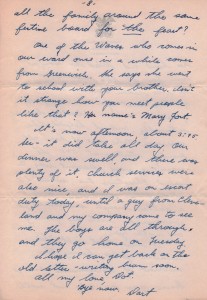 -8-
all the family around the same
festive board for the feast?
One of the Waves who comes in
our ward once in a while comes
from Greenwich. She says she went
to school with your brother. Isn't
it strange how you meet people
like that? Her name's Mary Fort
It's now afternoon, about
so- it did take all day. Our
dinner was swell, and there was
plenty of it. Church services were
also nice, and I was on escort
duty today, until a guy from Cleve-
land and my company came to see
me. The boys are all through,
and they go home on Tuesday.
I hope I can get back on the
old letter-writing beam soon.
All my love, Dot.
Bye now.